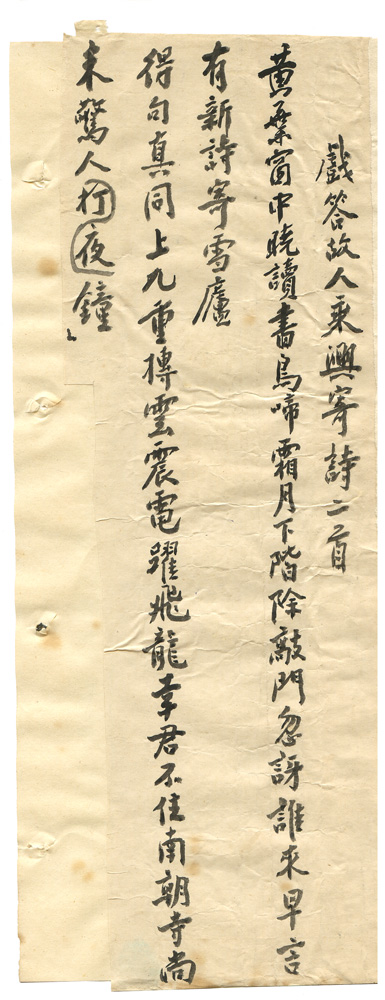 戲答故人乘興寄詩二首
黃葉窗中曉讀書烏啼霜月下階除敲門忽訝誰來早言
有新詩寄雪廬
得句真同上九重摶雲震電躍飛龍幸君不住南朝寺尚
未驚人行夜鐘